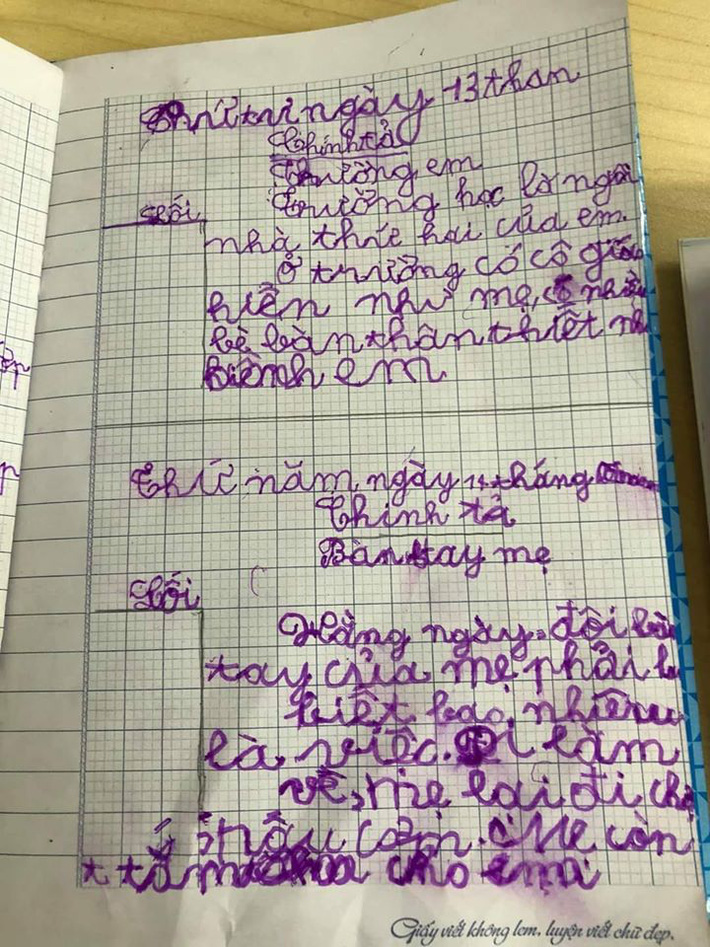 Thứ tư ngày 13 than
Chính tả
Trường em
Trường học là ngôi
Lỗi
nhà thứ hai của em.
ở trường có cô giáo
hiền như mẹ, có nhiều
bè bàn thân thiết như
em
Thứ năm ngày 14 tháng
Chính tả
Bàn tay mẹ
Lỗi
Hằng ngày, đôi bàn
tay của mẹ phải
biết bao nhiêu
là việc. Đi làm
về, mẹ lại đi chợ
nấu cơm. Mẹ còn
tắm cho em
Giấy viết không lem, luyện viết chữ đẹp.